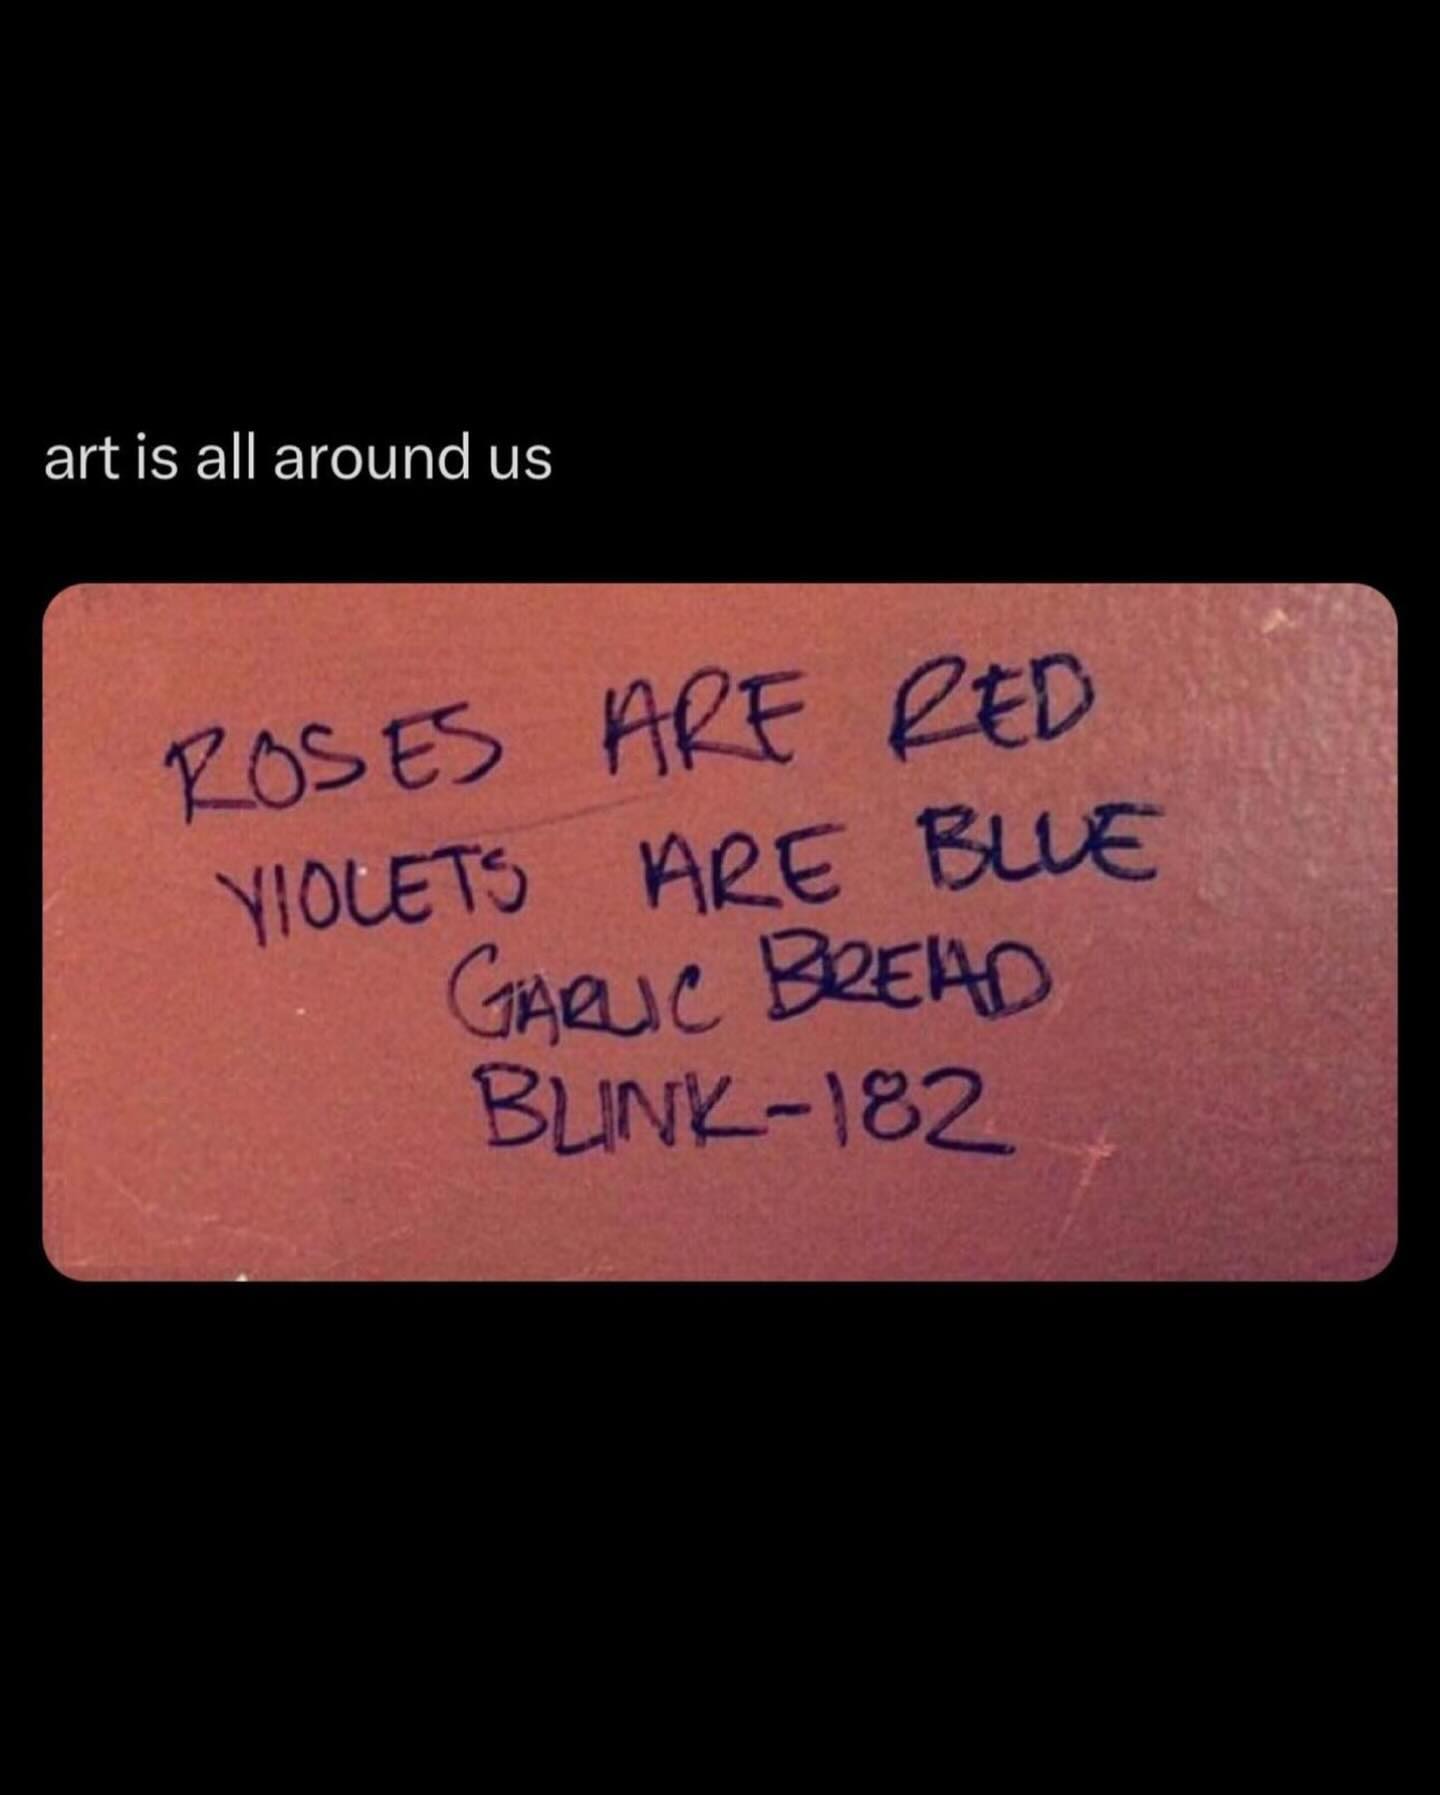 art is all around us
ROSES ARE RED
VIOLETS ARE BLUE
GARLIC BREAD
BLINK-182